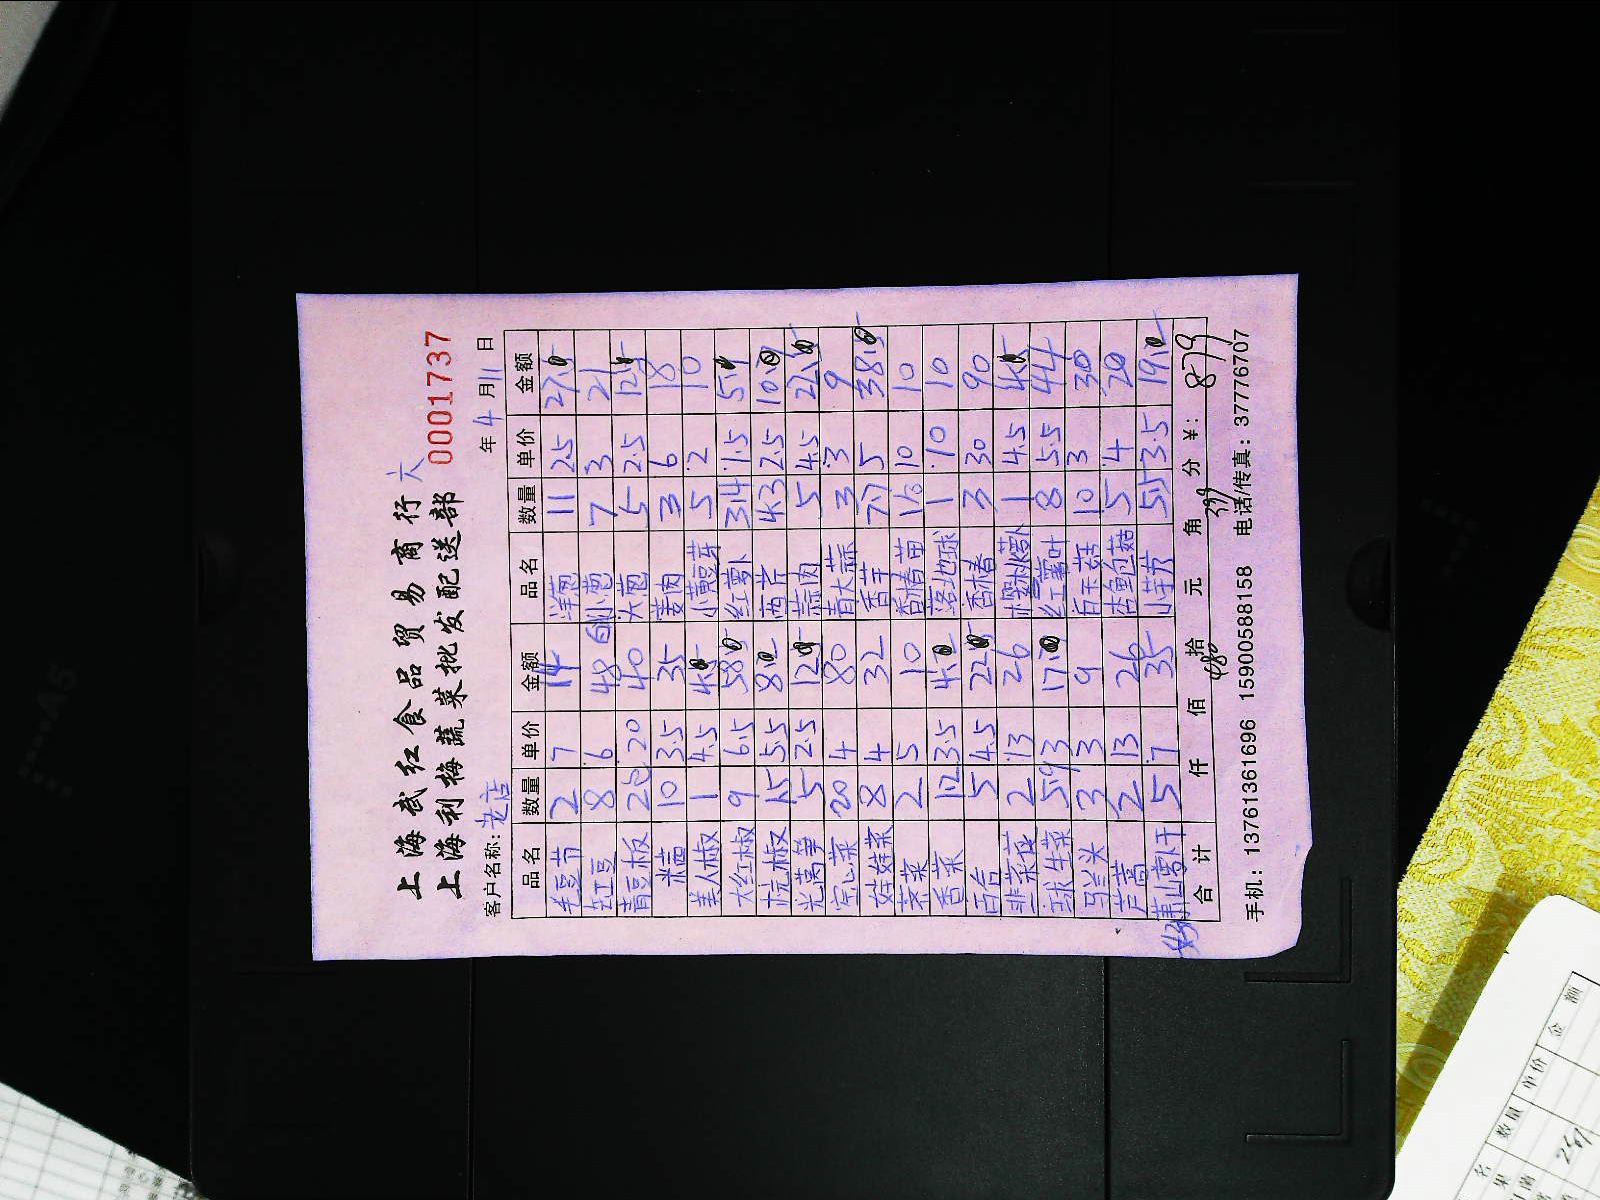 上海武红食品贸易商行 六
上海利梅蔬菜批发配送部 0001737
客户名称: 老店 年 4 月 11 日
品名 数量 单价 金额 品名 数量 单价 金额
毛豆节 2 7 14 洋葱 11 2.5 27.
缸豆 8 6 48 小葱 7 3 21
青豆板 2 20 40 大葱 5 2.5 12.
10 3.5 35 姜肉 3 6 18
美人椒 1 4.5 4. 小黄豆芽 5 2 10
大红椒 9 6.5 58. 红萝卜 3.4 1.5 5.
杭椒 1.5 5.5 8. 西芹 4.3 2.5 10.
光莴笋 5 2.5 12. 蒜肉 5 4.5 22.
空心菜 20 4 80 青大蒜 3 3 9
娃娃菜 8 4 32 香芋 7.7 5 38.
荠菜 2 5 10 香椿苗 1 10 10
香菜 1.2 3.5 4. 落地球 1 10 10
百合 5 4.5 22. 香椿 3 30 90
韭菜 2 13 26 樱桃萝卜 1 4.5 4.
球生菜 5.9 3 17. 红薯叶 8 5.5 44
马兰头 3 3 9 10 3 30
芦蒿 2 13 26 杏鲍菇 5 4 20
萧山萝卜干 5 7 35 小芋艿 5.5 3.5 19.
合计 仟 佰 拾 元 角 分 ¥: 879
480 399
手机: 13761361696 15900588158 电话/传真: 37776707
品名 数量 单价 金额